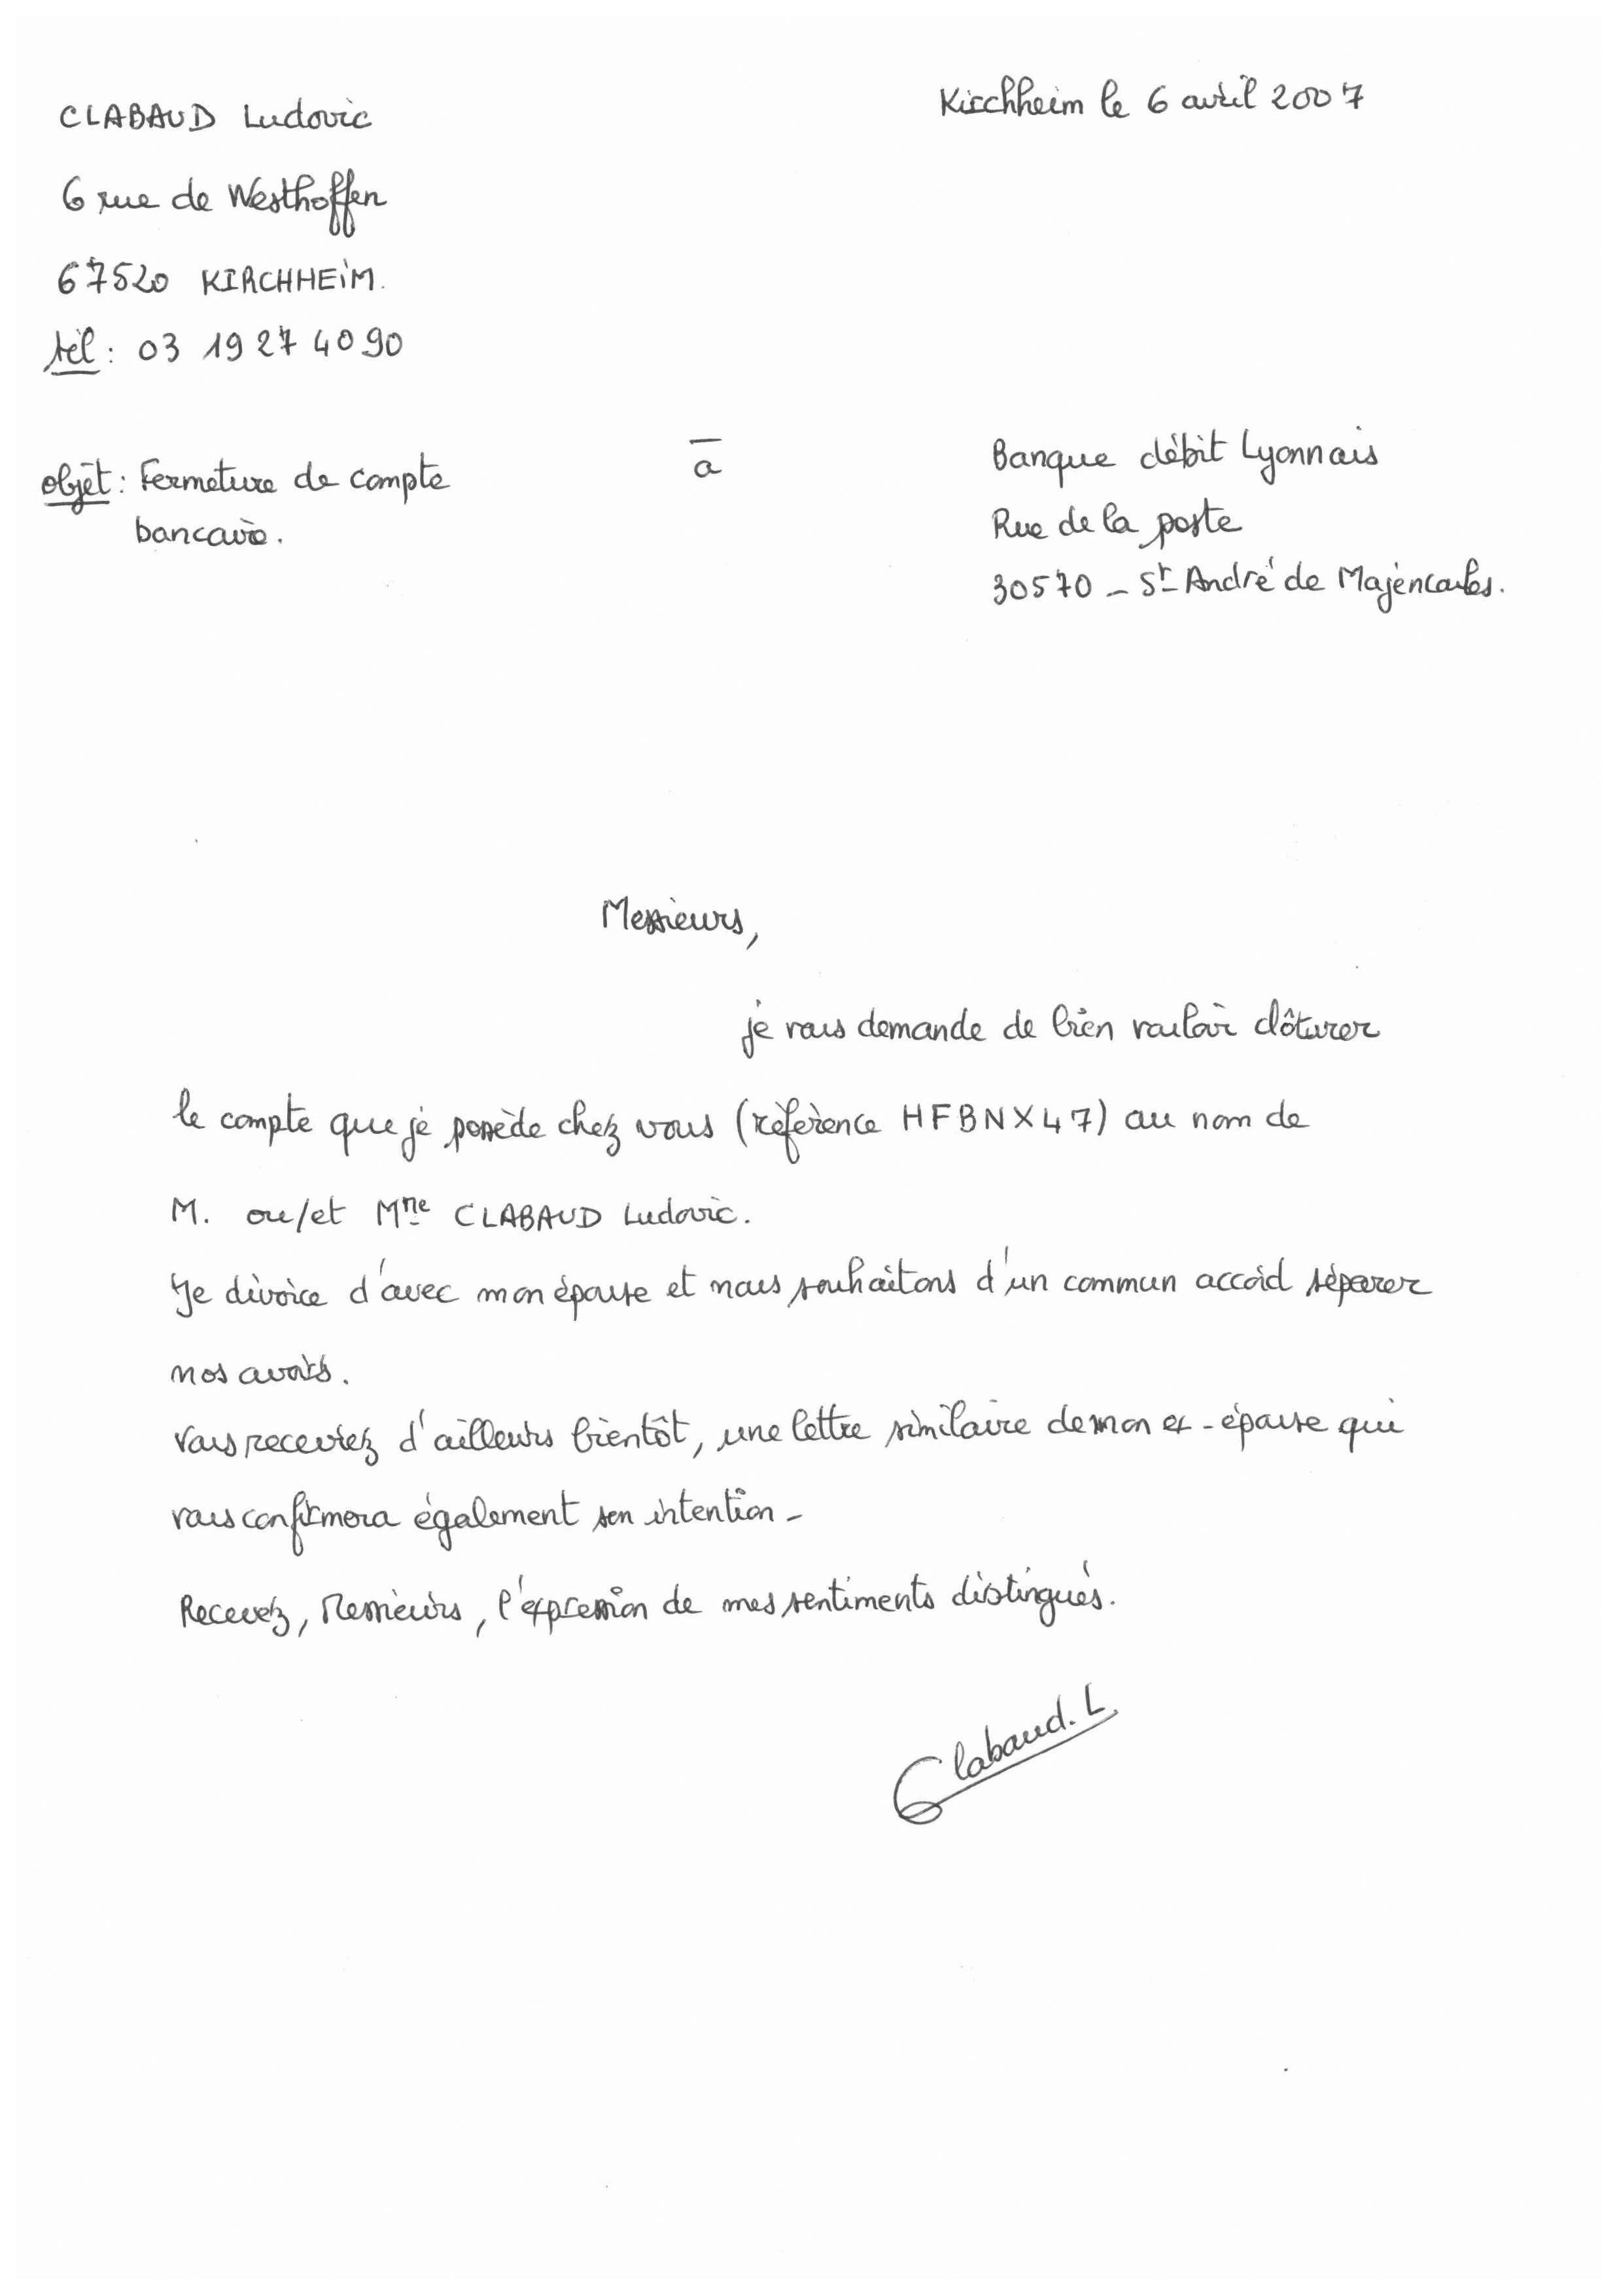 CLABAUD Ludovic
Kirchheim le 6 avril 2007
6 rue de Westhoffen
67520 KIRCHHEIM.
tél : 03 19 27 40 90
objet : Fermeture de compte
bancaire.
à
Banque débit Lyonnais
Rue de la poste
30570 - St André de Majencoules.
Messieurs,
je vous demande de bien vouloir clôturer
le compte que je possède chez vous (référence HFBNX47) au nom de
M. ou/et Mme CLABAUD Ludovic.
Je divorce d'avec mon épouse et nous souhaitons d'un commun accord séparer
nos avoirs.
Vous recevrez d'ailleurs bientôt, une lettre similaire de mon ex-épouse qui
vous confirmera également son intention -
Recevez, Messieurs, l'expression de mes sentiments distingués.
Clabaud. L